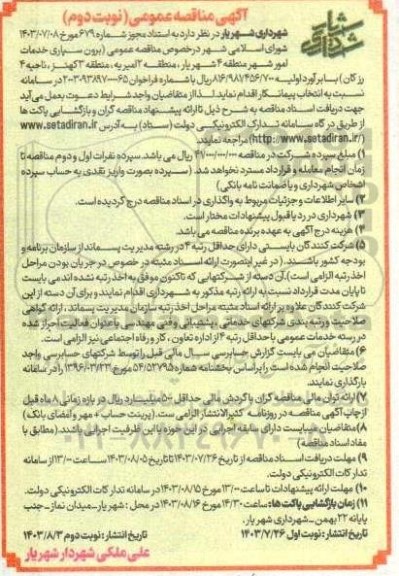 شهرداری شهریار
آگهی مناقصه عمومی (نوبت دوم)
شهرداری شهریار در نظر دارد به استناد مجوز شماره ۶۷۹ مورخ ۱۴۰۳/۰۷/۰۸
شورای اسلامی شهر در خصوص مناقصه عمومی (برون سپاری خدمات
امور شهر منطقه ۴ شهریار ، منطقه ۲ امیریه ، منطقه ۳ کهنز ، ناحیه ۴
رزکان) با برآورد اولیه ۸۱۶/۹۸۷/۴۵۶/۷۰۰ ریال با شماره فراخوان ۲۰۰۳۰۹۳۸۹۷۰۰۰۰۶۵ در سامانه
نسبت به انتخاب پیمانکار اقدام نماید. لذا از متقاضیان واجد شرایط دعوت بعمل می آید
جهت دریافت اسناد مناقصه به شرح ذیل تا ارائه پیشنهاد مناقصه گران و بازگشایی پاکت ها
از طریق درگاه سامانه تدارک الکترونیکی دولت (ستاد) به آدرس www.setadiran.ir
(http://www.setadiran.ir/) مراجعه نمایند.
۱) مبلغ سپرده شرکت در مناقصه ۴۷/۰۰۰/۰۰۰/۰۰۰ ریال می باشد. سپرده نفرات اول و دوم مناقصه تا
زمان انجام معامله و قرارداد مسترد نخواهد شد. (سپرده بصورت واریز نقدی به حساب سپرده
اشخاص شهرداری و یا ضمانت نامه بانکی)
۲) سایر اطلاعات و جزئیات مربوط به واگذاری در اسناد مناقصه درج گردیده است.
۳) شهرداری در رد یا قبول پیشنهادات مختار است.
۴) هزینه درج آگهی به عهده برنده مناقصه می باشد.
۵) شرکت کنندگان بایستی دارای حداقل رتبه ۴ در رشته مدیریت پسماند از سازمان برنامه و
بودجه کشور باشند. (در غیر اینصورت ارائه اسناد مثبته در خصوص در جریان بودن مراحل
اخذ رتبه الزامی است). آن دسته از شرکتهایی که تاکنون موفق به اخذ رتبه نشده اند می بایست
تا پایان مدت قرارداد نسبت به ارائه رتبه مذکور به شهرداری اقدام نمایند و برای آن دسته از این
شرکت کنندگان علاوه بر ارائه اسناد مثبته مراحل اخذ رتبه سازمان مدیریت پسماند ، ارائه گواهی
صلاحیت و رتبه بندی شرکتهای خدماتی ، پشتیبانی و فنی مهندسی با عنوان فعالیت احراز شده
در رسته خدمات عمومی با حداقل رتبه ۴ از اداره تعاون ، کار و رفاه اجتماعی نیز الزامی است.
۶) متقاضیان می بایست گزارش حسابرسی سال مالی قبل را توسط شرکتهای حسابرسی واجد
صلاحیت انجام شده است را بر اساس بخشنامه شماره ۵۴/۵۲۷۹۵ مورخ ۱۳۹۶/۰۳/۲۳ را در سامانه
بارگذاری نمایند.
۷) ارائه توان مالی مناقصه گران با گردش مالی حداقل ۵۰ میلیارد ریال در بازه زمانی ۸ ماه قبل
از چاپ آگهی مناقصه در روزنامه کثیرالانتشار الزامی است. (پرینت حساب + مهر و امضای بانک)
۸) متقاضیان میبایست دارای سابقه اجرایی در این حوزه با این ظرفیت اجرایی باشند. (مطابق با
مفاد اسناد مناقصه)
۹) مهلت دریافت اسناد مناقصه از تاریخ ۱۴۰۳/۰۷/۲۶ تا تاریخ ۱۴۰۳/۰۸/۰۵ ساعت ۱۳/۰۰ از سامانه
تدارکات الکترونیکی دولت.
۱۰) مهلت ارائه پیشنهادات تا ساعت ۱۳/۰۰ مورخ ۱۴۰۳/۰۸/۱۵ در سامانه تدارکات الکترونیکی دولت.
۱۱) زمان بازگشایی پاکت ها: ساعت ۱۴/۳۰ مورخ ۱۴۰۳/۰۸/۱۶ در محل : شهریار_میدان نماز_جنب
پایانه ۲۲ بهمن_شهرداری شهریار.
تاریخ انتشار: نوبت اول ۱۴۰۳/۷/۲۶ تاریخ انتشار: نوبت دوم ۱۴۰۳/۸/۳
علی ملکی شهردار شهریار